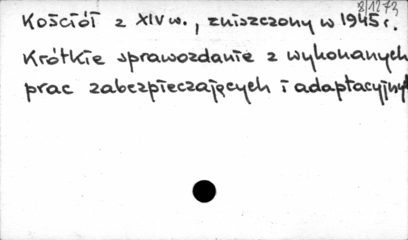 8/1273
Kościół z XIV w., zniszczony w 1945 r.
Krótkie sprawozdanie z wykonanych
prac zabezpieczających i adaptacyjnych